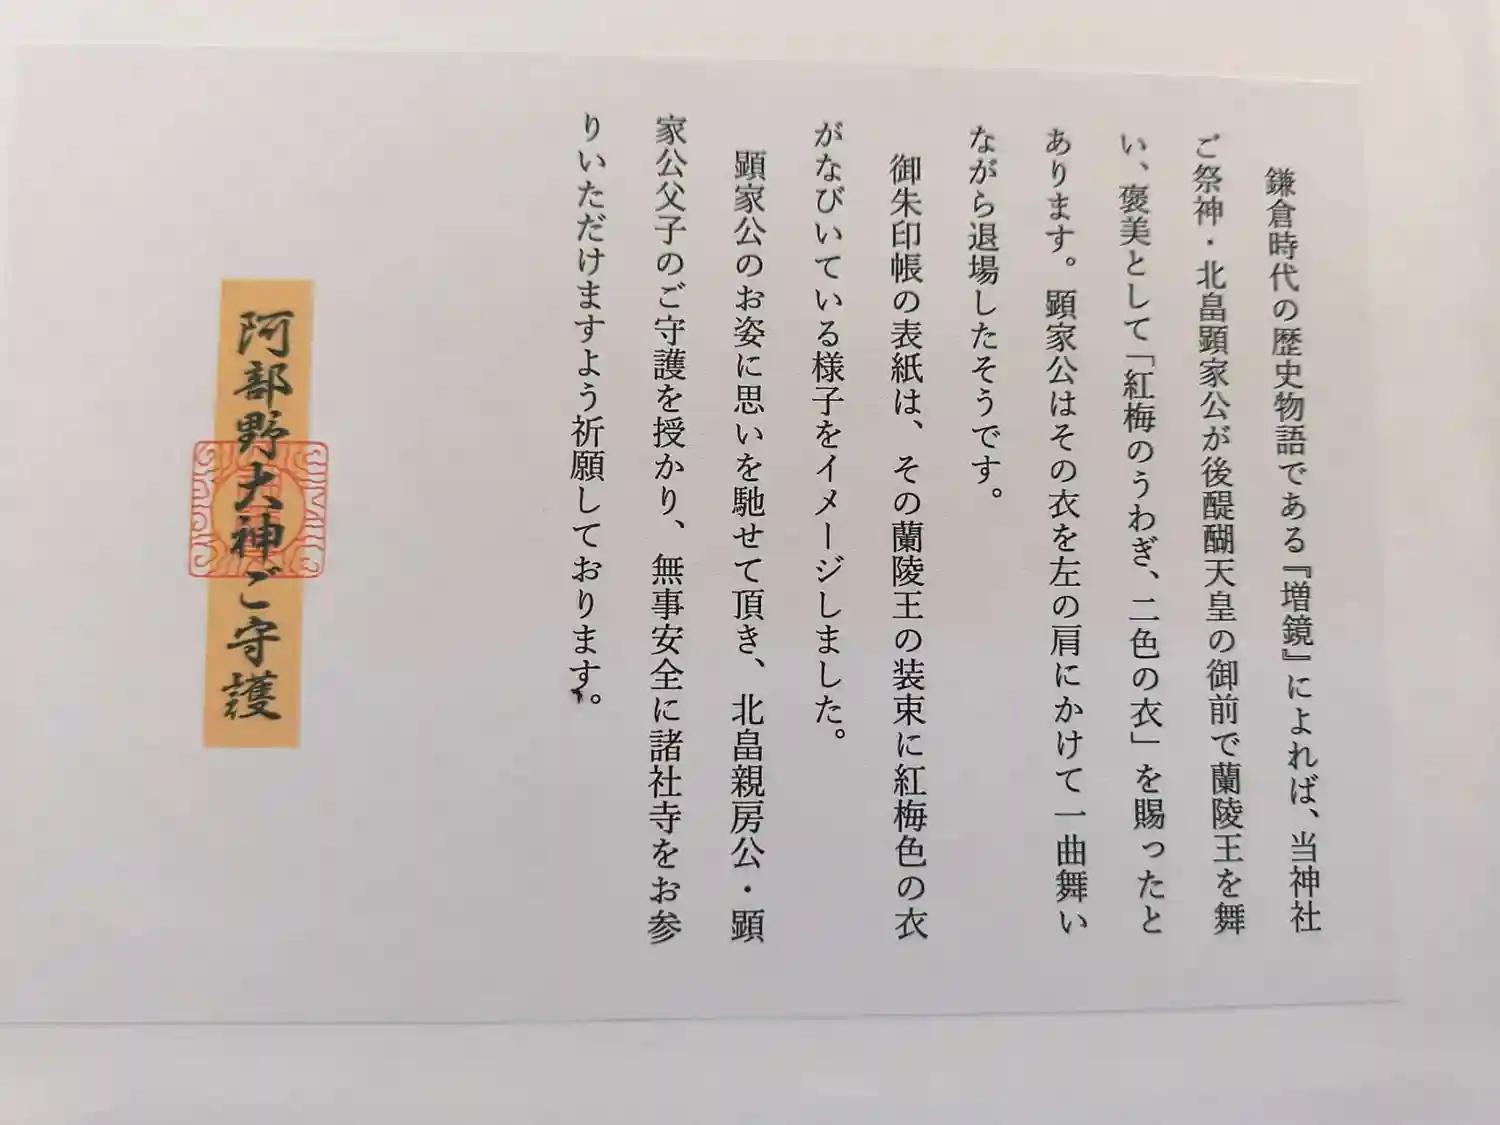 鎌倉時代の歴史物語である『増鏡』によれば、当神社
ご祭神・北畠顕家公が後醍醐天皇の御前で蘭陵王を舞
い、褒美として「紅梅のうわぎ、二色の衣」を賜ったと
あります。顕家公はその衣を左の肩にかけて一曲舞い
ながら退場したそうです。
御朱印帳の表紙は、その蘭陵王の装束に紅梅色の衣
がなびいている様子をイメージしました。
顕家公のお姿に思いを馳せて頂き、北畠親房公・顕
家公父子のご守護を授かり、無事安全に諸社寺をお参
りいただけますよう祈願しております。
阿部野大神ご守護